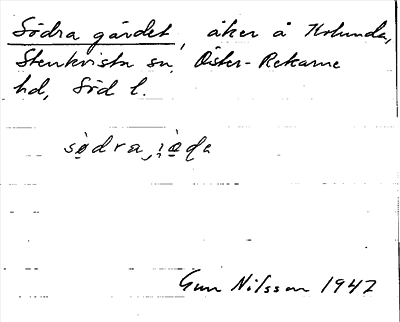 Södra gärdet, åker å Kolunda,
Stenkvista sn, Öster-Rekarne
hd, Söd l.
Gun Nilsson 1947